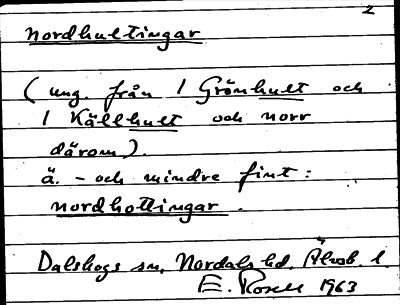 2
nordhultingar
(ung. från / Grönhult och
/ Källhult och norr
därom).
ä. - och mindre fint:
nordhottingar.
Dalskogs sn, Nordals hd, Älvsb. l.
E. Rosell 1963